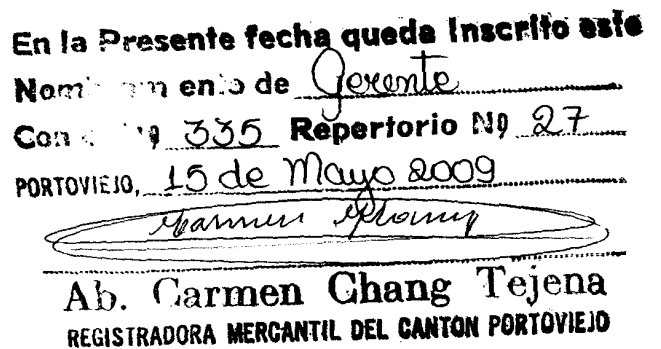 En la Presente fecha queda Inscrito este
Nombramiento de Gerente
Con el Nº 335 Repertorio Nº 27
PORTOVIEJO, 15 de Mayo 2009
Carmen Chang
Ab. Carmen Chang Tejena
REGISTRADORA MERCANTIL DEL CANTON PORTOVIEJO